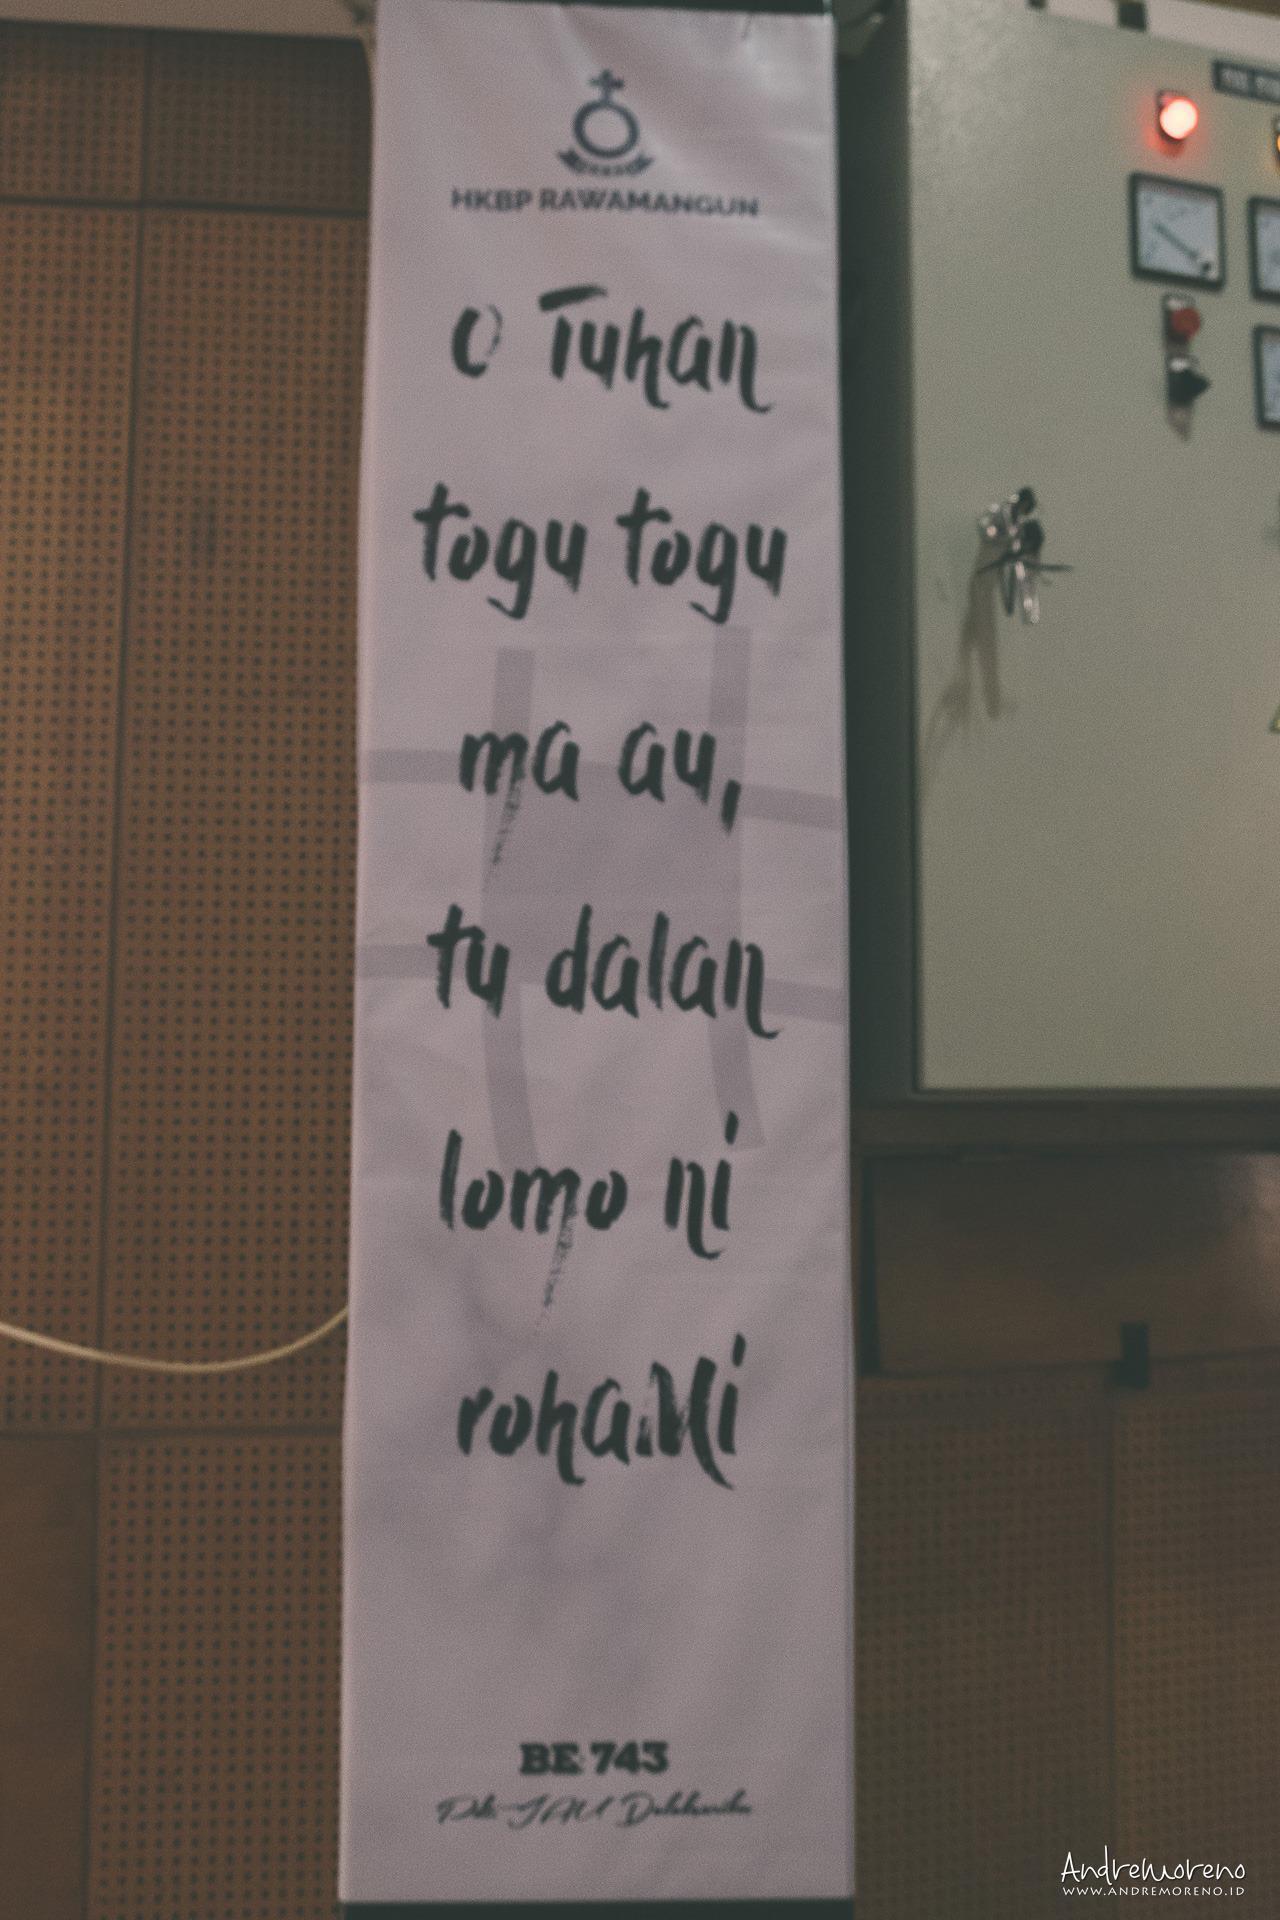 HKBP RAWAMANGUN
O Tuhan
togu togu
ma au,
tu dalan
lomo ni
rohaMi
BE 743
AndreMoreno
WWW.ANDREMORENO.ID